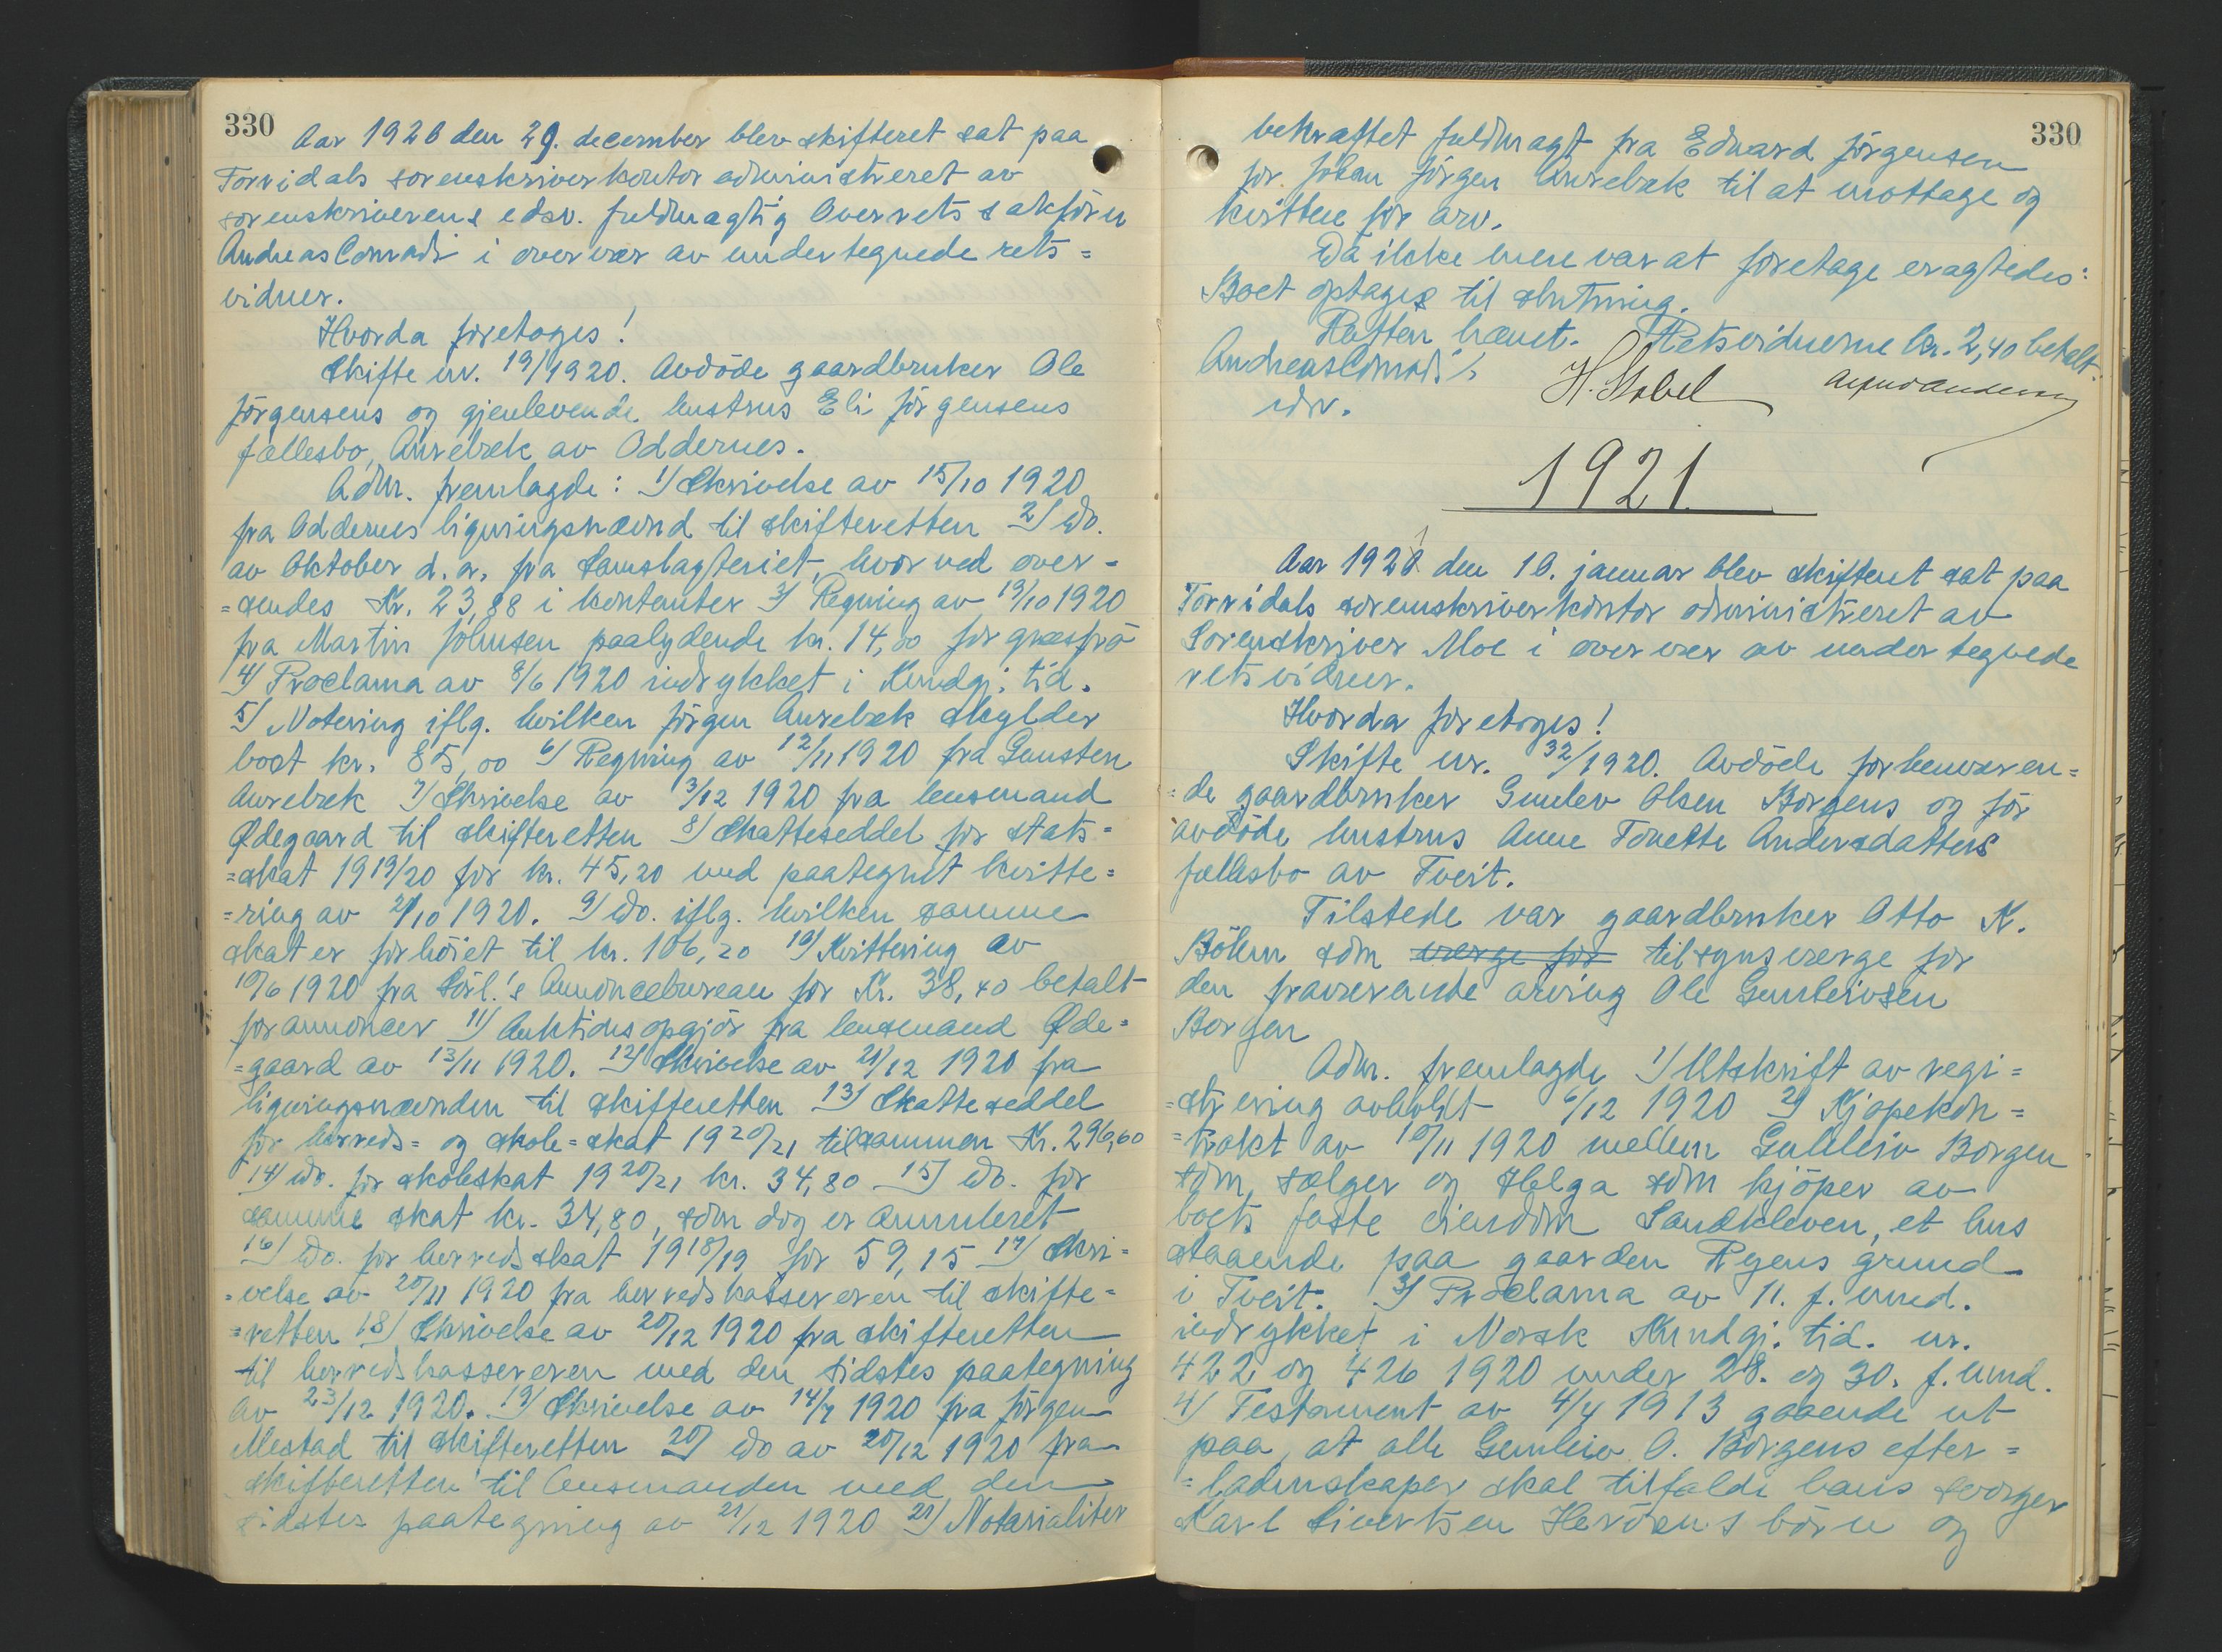 330
Aar 1920 den 29. december blev skifteret sat paa
Torridals sorenskriverkontor administreret av
sorenskriverens edsv. fuldmægtig Overretssakfører
Andreas Conradi i overvær av undertegnede rets=
vidner.
Hvorda foretoges!
Skifte nr. 19/1920. Avdöde gaardbruker Ole
Jörgensens og gjenlevende hustrus Eli Jörgensens
fællesbo, Aurebæk av Oddernes.
Adm. fremlagde: 1) Skrivelse av 15/10 1920
fra Oddernes ligningsnævnd til skifteretten 2) do.
av Oktober d. a. fra Samslagteriet, hvorved over-
=sendes Kr. 23,88 i kontanter 3) Regning av 19/10 1920
fra Martin Johnsen paalydende kr. 14,00 for græsfrö
4) Proclama av 8/6 1920 indrykket i Kundgj. tid.
5) Notering iflg. hvilken Jörgen Aurebæk skylder
boet kr. 85,00 6) Regning av 12/11 1920 fra Gunsten
Aurebæk 7) Skrivelse av 3/12 1920 fra lensmand
Ødegaard til skifteretten 8) Skatteseddel for stats=
=skat 1919/20 for kr. 45,20 med paategnet kvitte=
=ring av 21/10 1920. 9) do. iflg. hvilken samme
skat er forhöiet til kr. 106,20 10) Kvittering av
10/6 1920 fra Sörl.'s Annoncebureau for Kr. 38,40 betalt
for annoncer 11) Auktionsopgjör fra lensmand Øde=
=gaard av 13/11 1920. 12) Skrivelse av 21/12 1920 fra
ligningsnævnden til skifteretten 13) Skatteseddel
for herreds= og skole=skat 1920/21 tilsammen Kr. 296,60
14) do. for skoleskat 1920/21 kr. 34,80 15) do. for
samme skat kr. 34,80, som dog er annulleret
16) do. for herredsskat 1918/19 for 59,15 17) Skri=
=velse av 20/11 1920 fra herredskassereren til skifte=
=retten 18) Skrivelse av 20/12 1920 fra skifteretten
til herredskassereren med den sidstes paategning
av 23/12 1920. 19) Skrivelse av 14/7 1920 fra Jörgen
Mestad til skifteretten 20) do av 20/12 1920 fra
skifteretten til lensmanden med den
sidstes paategning av 21/12 1920 21) Notarialiter
330
bekræftet fuldmagt fra Edward Jörgensen
for Johan Jörgen Aurebæk til at mottage og
kvittere for arv.
Da ikke mere var at foretage eragtedes:
Boet optages til slutning.
Retten hævet. Retsvidnerne kr. 2,40 betalt.
Andreas Conradi
edsv.
H. Stobel
1921
Aar 1921 den 10. januar blev skifteret sat paa
Torridals sorenskriverkontor administreret av
Sorenskriver Moe i overvær av undertegnede
retsvidner.
Hvorda foretoges!
Skifte nr. 32/1920. Avdöde forhenværen=
=de gaardbruker Gunlev Olsen Borgens og för
avdöde hustrus Anne Tonette Andersdatters
fællesbo av Tveit.
Tilstede var gaardbruker Otto K.
Böhn som værge for tilsynsværge for
den fraværende arving Ole Gunleivsen
Borgen
Adm. fremlagde 1) Utskrift av regi=
=strering avholdt 6/12 1920 2) Kjøpekon=
=trakt av 10/11 1920 mellem Gunleiv Borgen
som sælger og Helga som kjöper av
boets faste eiendom Sandkleven, et hus
staaende paa gaarden Ryens grund
i Tveit. 3) Proclama av 11. f. mnd.
indrykket i Norsk Kundgj. tid. nr.
422 og 426 1920 under 28. og 30. f. mnd.
4) Testament av 4/4 1913 gaaende ut
paa, at alle Gunleiv O. Borgens efter=
=ladenskaper skal tilfalde hans svoger
Karl Sivertsen Heröens börn og